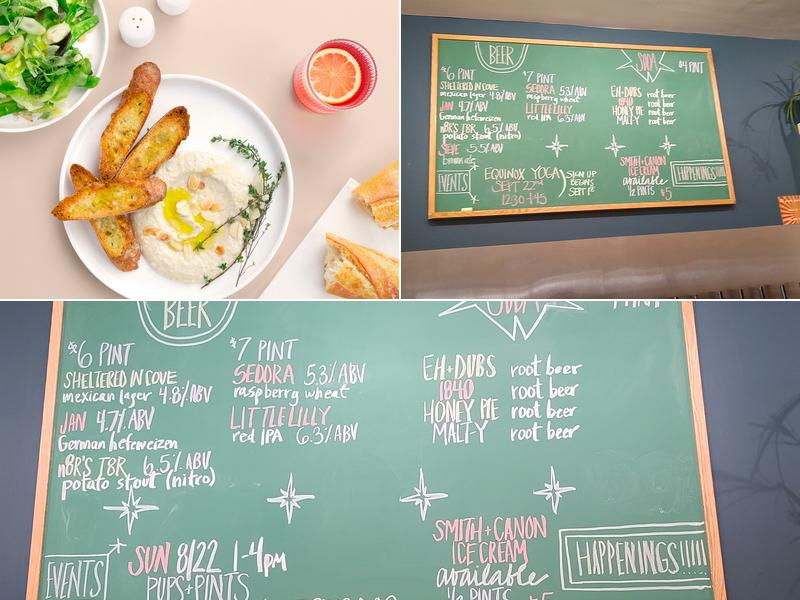 BEER
SODA
$6 PINT
$7 PINT
$4 PINT
SHELTERED IN COVE
mexican lager 4.8%ABV
SEDORA 5.3%ABV
raspberry wheat
JAN 4.7%ABV
German hefeweizen
LITTLE LILLY
red IPA 6.3%ABV
EH+DUBS root beer
1840 root beer
HONEY PIE root beer
MALT-Y root beer
nBR'S TBR 6.5%ABV
potato stout (nitro)
5.5%ABV
SMITH+CANON
ICE CREAM
available
½ PINTS $5
HAPPENINGS!!!!!
EVENTS
EQUINOX YOGA
SEPT 22nd
SIGN UP
BEGINS
SEPT 1st
BEER
SODA
$6 PINT
$7 PINT
SHELTERED IN COVE
mexican lager 4.8%ABV
SEDORA 5.3%ABV
raspberry wheat
JAN 4.7%ABV
German hefeweizen
LITTLE LILLY
red IPA 6.3%ABV
EH+DUBS root beer
1840 root beer
HONEY PIE root beer
MALT-Y root beer
nBR'S TBR 6.5%ABV
potato stout (nitro)
SMITH+CANON
ICE CREAM
available
½ PINTS $5
HAPPENINGS!!!!!
EVENTS
SUN 8/22 1-4pm
PUPS+PINTS